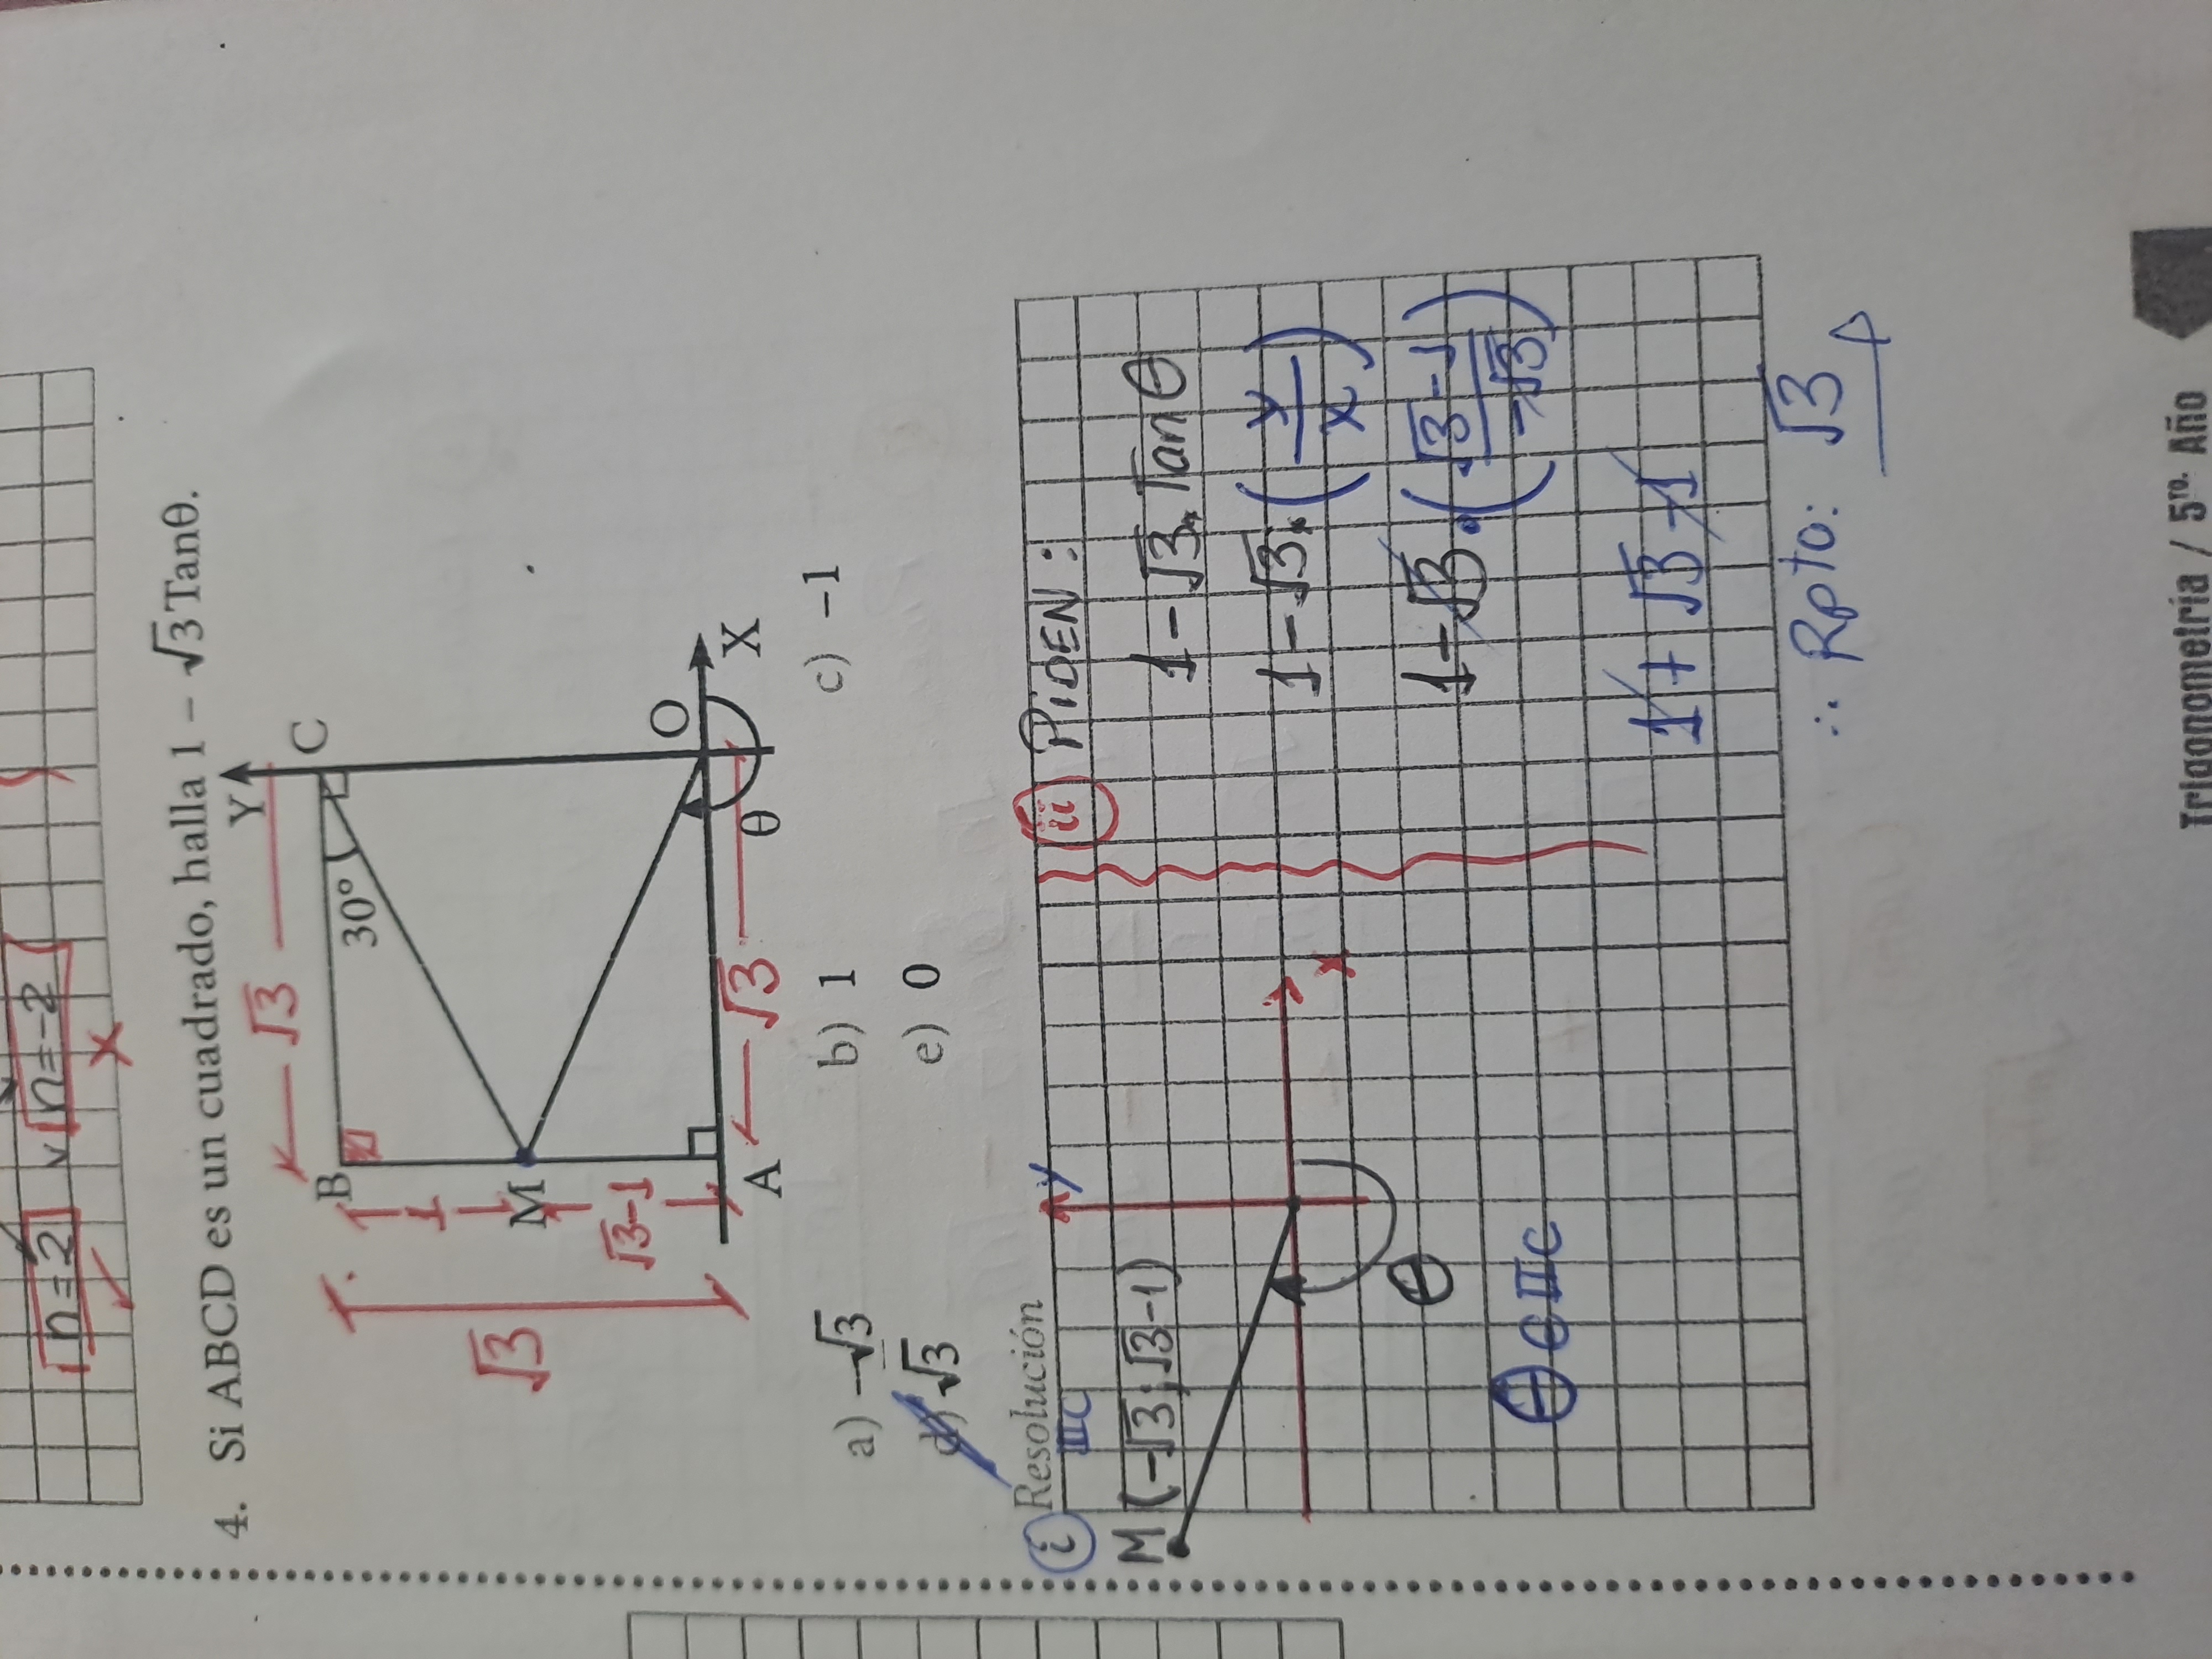 n=2 ∨ n=-2
✓ x
4. Si ABCD es un cuadrado, halla 1 – √3 Tanθ.
Y
√3
B
C
30°
1
√3
M
√3-1
O
X
A
√3
θ
a) –√3
b) 1
c) –1
d) √3
e) 0
i Resolución
IIC
Y
M (-√3; √3-1)
x
θ
θ ∈ IIC
ii PiDEN:
1-√3. Tan θ
1-√3.(y/x)
1-√3.(√3-1/-√3)
1+√3-1
∴ Rpta: √3
Trigonometría / 5ro. Año